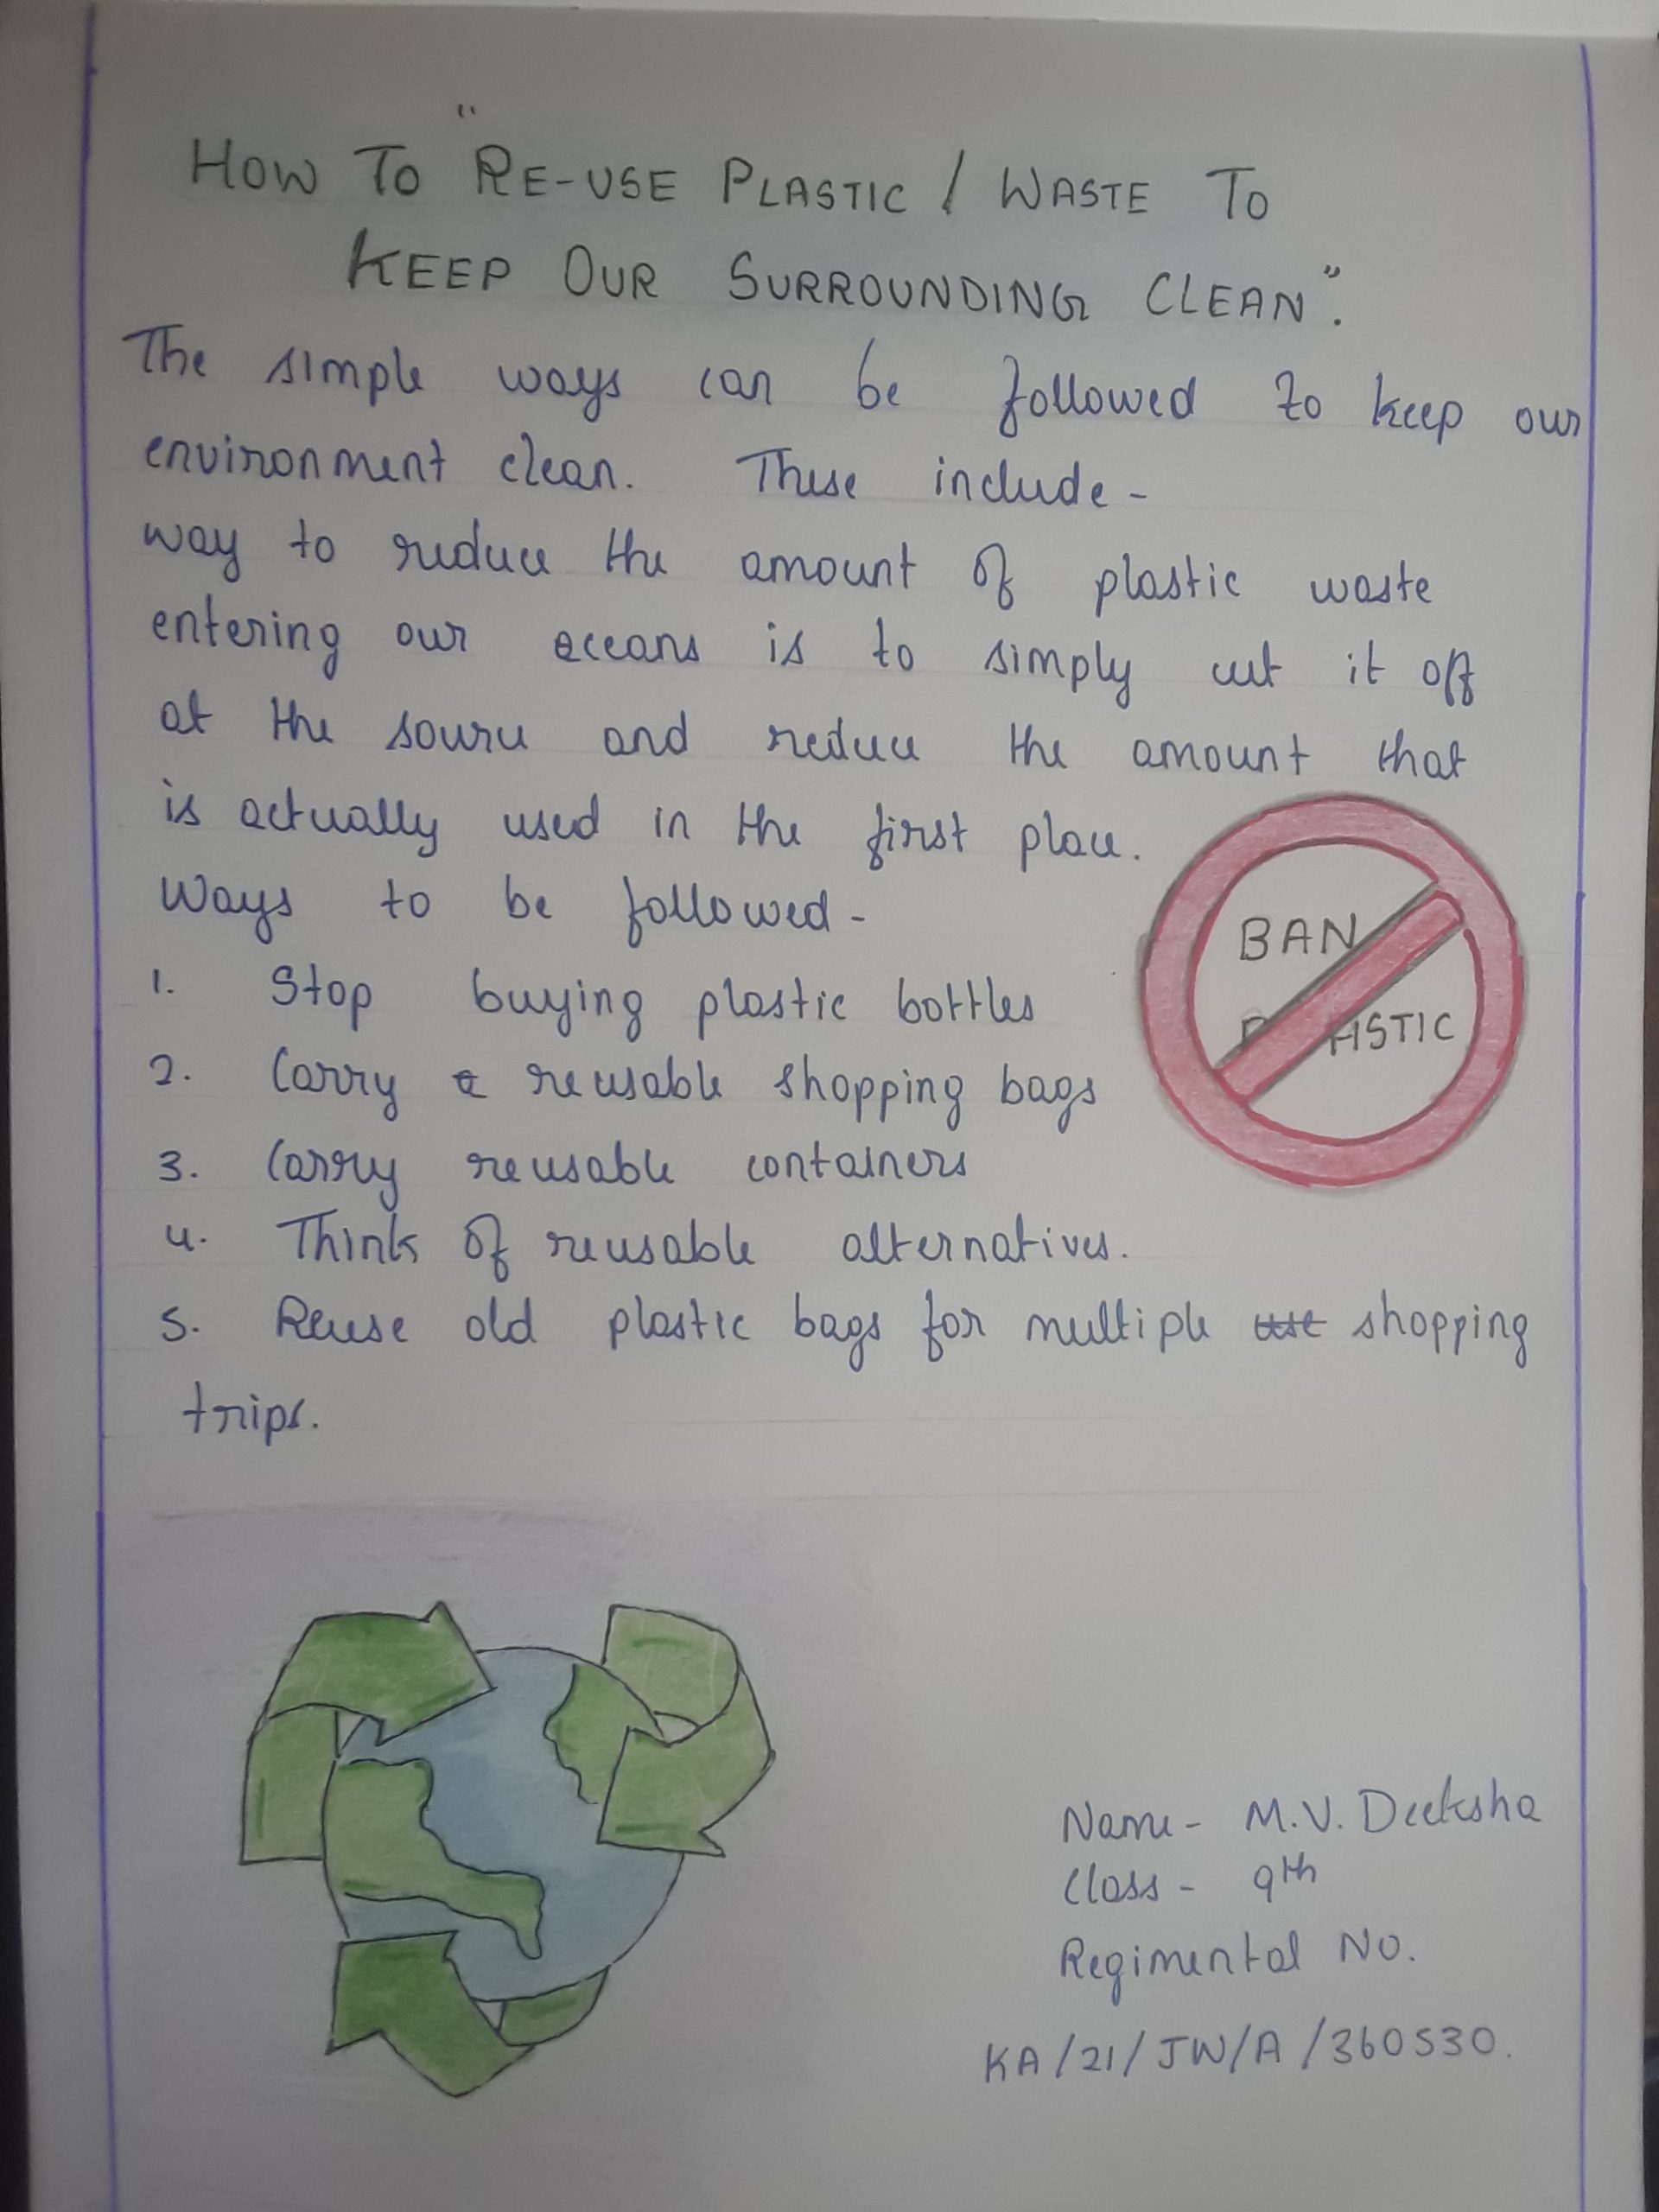 HOW TO "RE-USE PLASTIC / WASTE TO
KEEP OUR SURROUNDING CLEAN".
The simple ways can be followed to keep our
environment clean. These include -
way to reduce the amount of plastic waste
entering our oceans is to simply cut it off
at the source and reduce the amount that
is actually used in the first place.
Ways to be followed -
BAN
PLASTIC
1. Stop buying plastic bottles
2. Carry a reusable shopping bags
3. Carry reusable containers
4. Think of reusable alternatives.
5. Reuse old plastic bags for multiple use shopping
trips.
Name - M.V. Deeksha
Class - 9th
Regimental No.
KA/21/JW/A/360530.